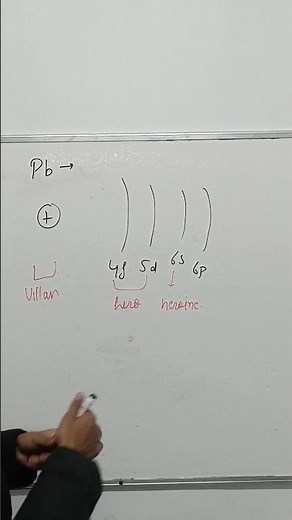 Pb →
+
4f 5d 6s 6p
Villan hero heroine